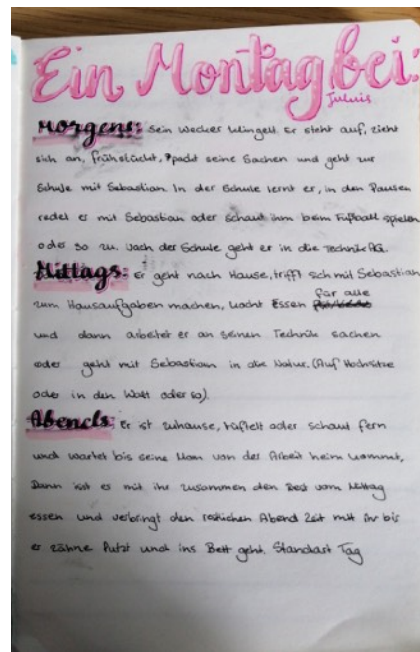 Ein Montag bei:
Juluis
Morgens: Sein Wecker klingelt. Er steht auf, zieht
sich an, frühstückt, packt seine Sachen und geht zur
Schule mit Sebastian. In der Schule lernt er, in den Pausen
redet er mit Sebastian oder schaut ihm beim Fußball spielen
oder so zu. Nach der Schule geht er in die Technik AG.
Mittags: Er geht nach Hause, trifft sich mit Sebastian
für alle
zum Hausaufgaben machen, kocht Essen
und dann arbeitet er an seinen Technik sachen
oder geht mit Sebastian in die Natur. (Auf Hochsitze
oder in den Watt oder so).
Abends: Er ist zuhause, tüftelt oder schaut fern
und wartet bis seine Mom von der Arbeit heim kommt,
Dann isst er mit ihr zusammen den Rest vom Mittag
essen und verbringt den restlichen Abend Zeit mit ihr bis
er zähne Putzt und ins Bett geht. Standart Tag